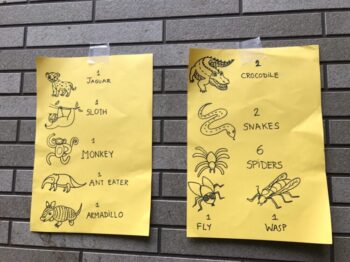 1
JAGUAR
1
SLOTH
1
MONKEY
1
ANT EATER
1
ARMADILLO
2
CROCODILE
2
SNAKES
6
SPIDERS
1
FLY
1
WASP